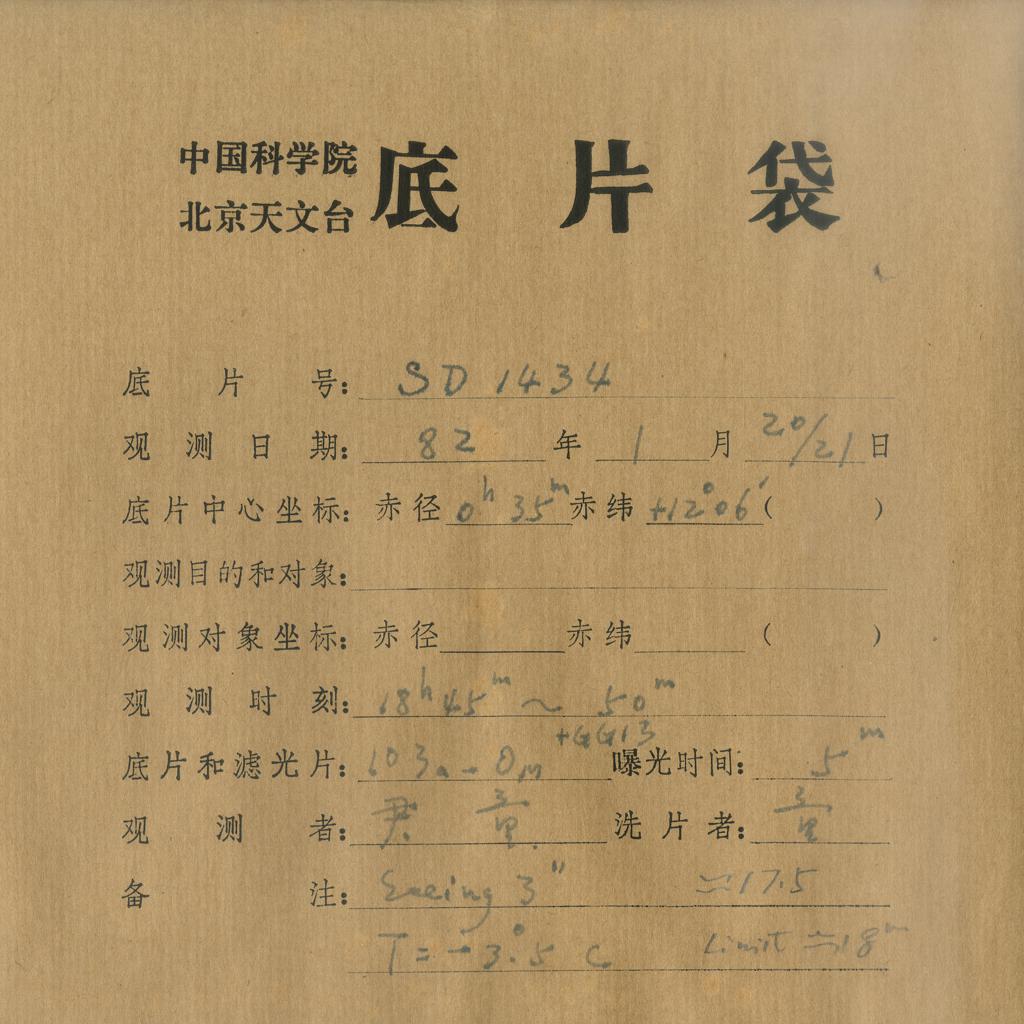 中国科学院
北京天文台
底片袋
底片号: SD 1434
观测日期: 82 年 1 月 20/21 日
底片中心坐标: 赤径 0h 35m 赤纬 +12°06′ ( )
观测目的和对象:
观测对象坐标: 赤径 赤纬 ( )
观测时刻: 18h 45m ~ 50m
+GG13
底片和滤光片: 103a-O 曝光时间: 5m
观测者: 洗片者:
备注: Seeing 3″ ≈17.5
T = -3°.5 C Limit ≈18m